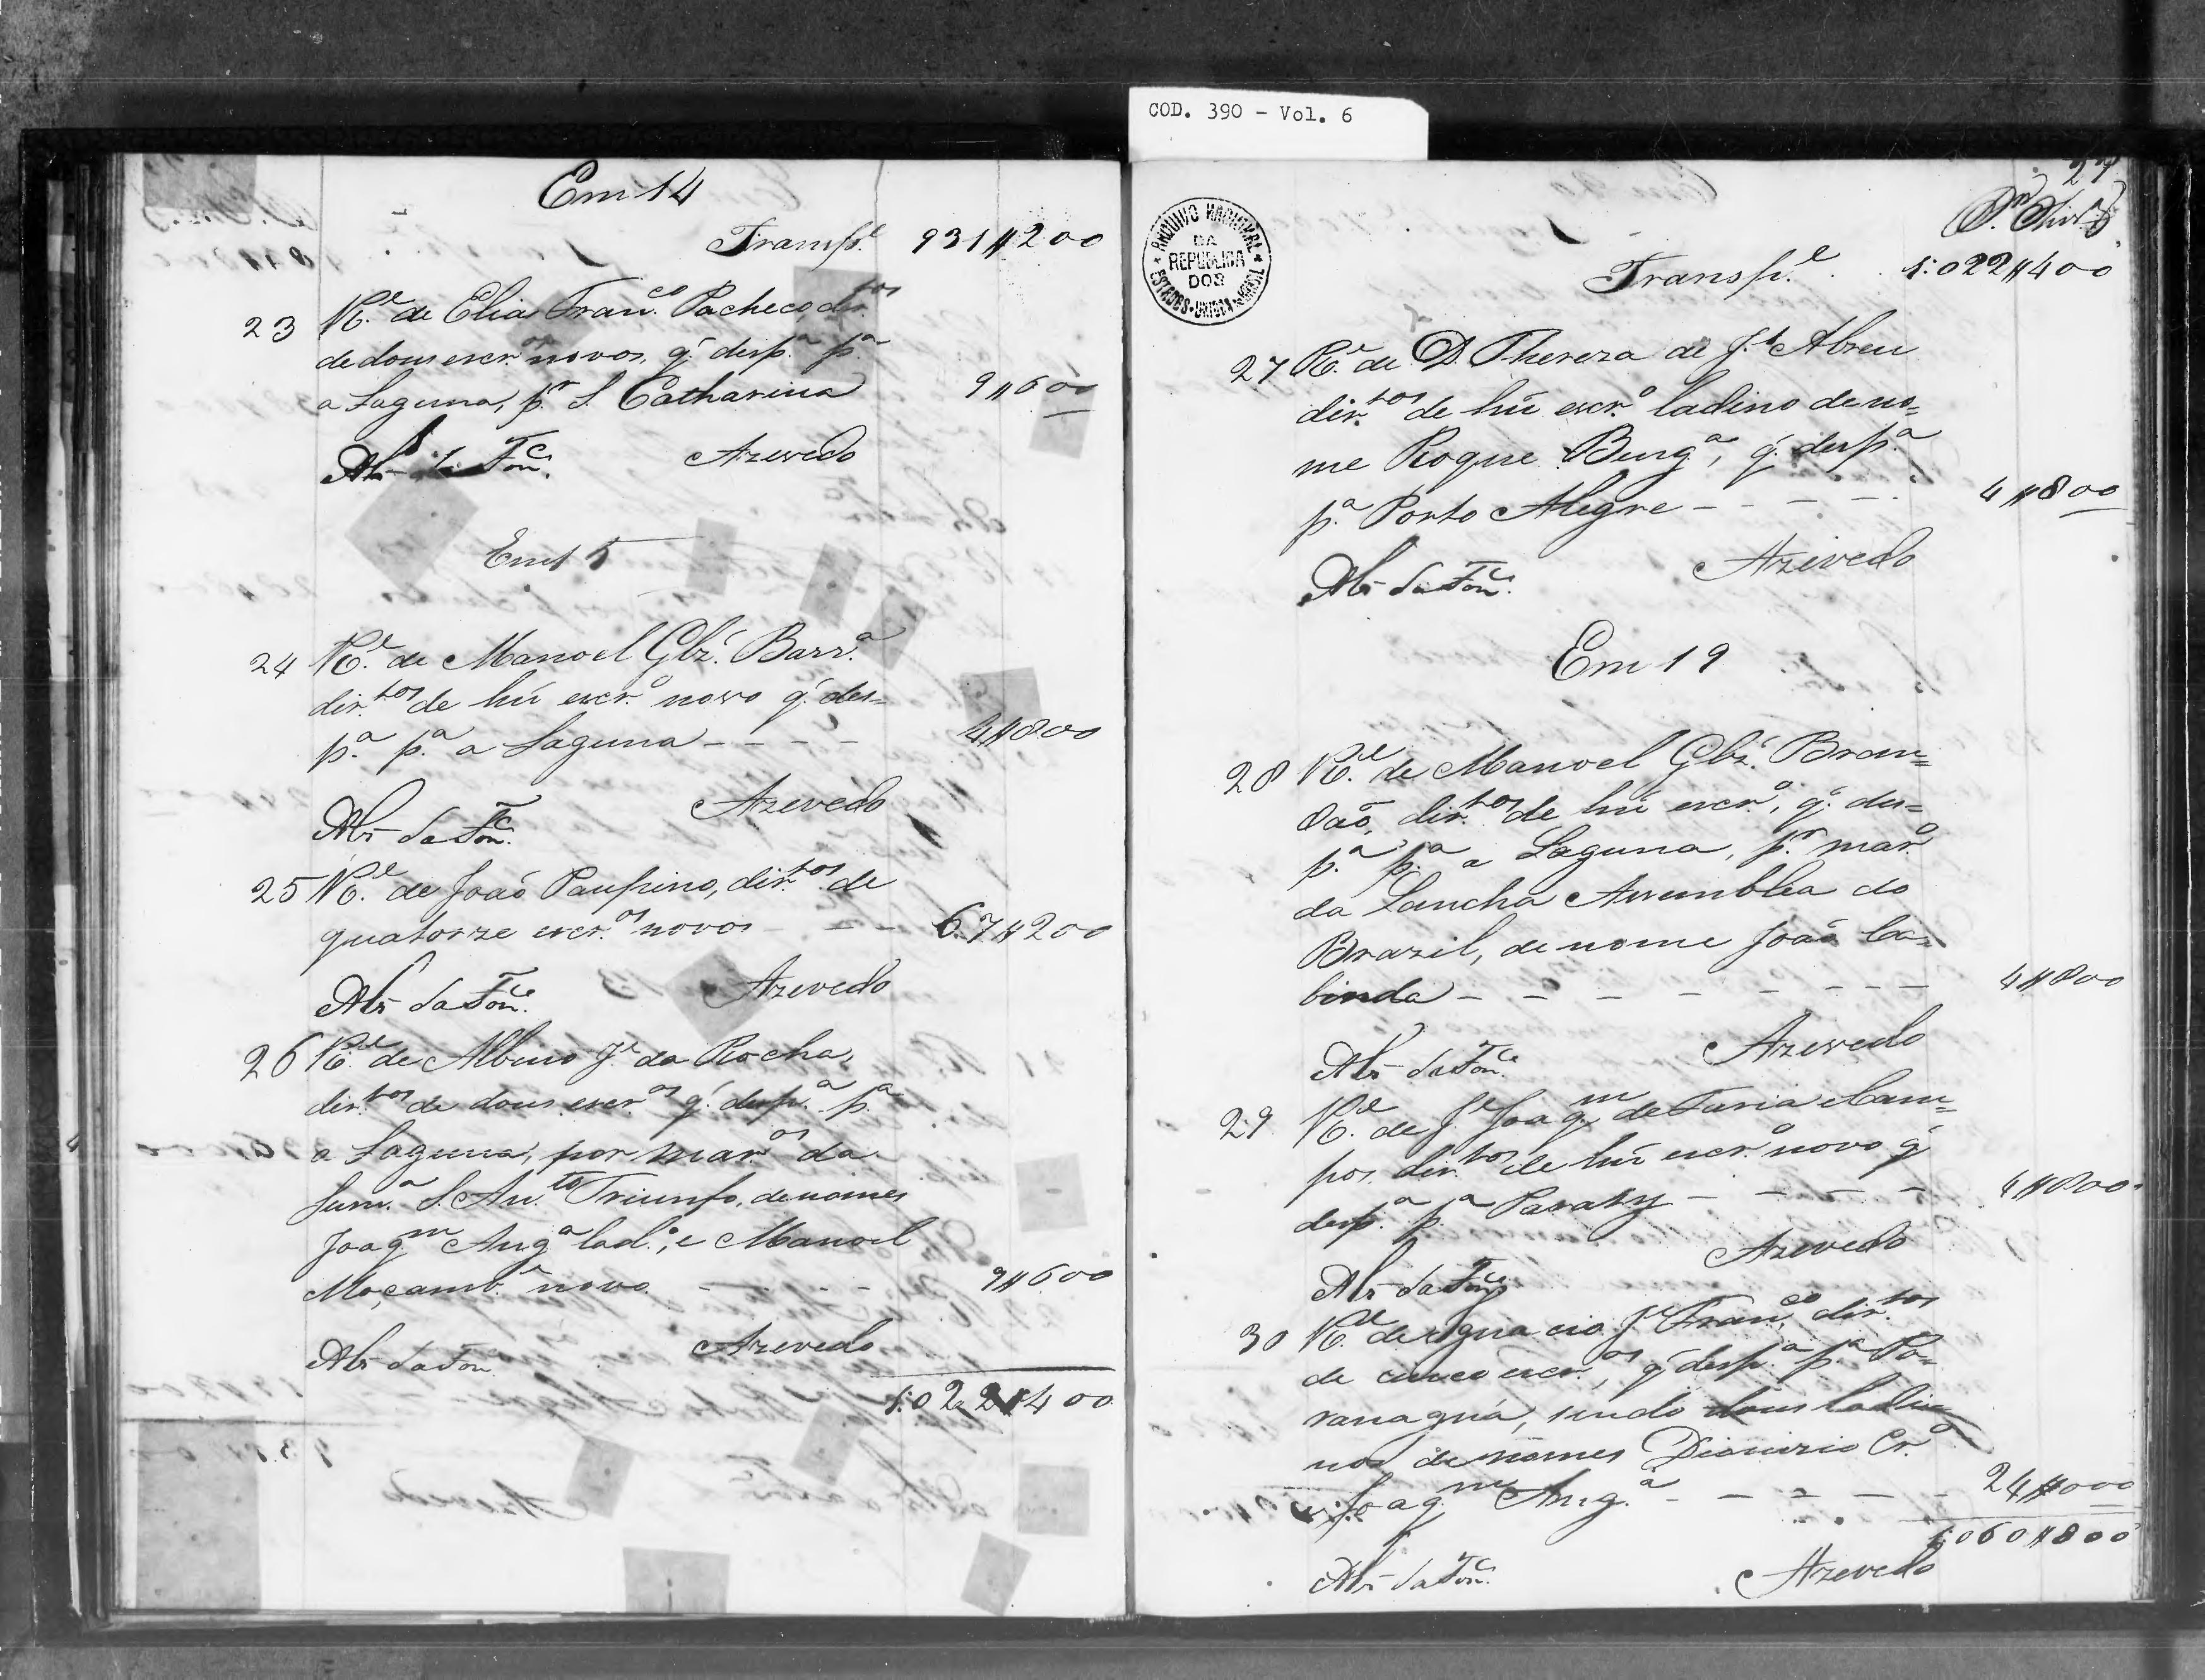 COD. 390 - Vol. 6
Em 14
Transp.e 931$200
23 R.e de Elias Fran.co Pacheco dir.tos
de dous escr.os novos, q̃ desp.a p.a
a Laguna, p.r S. Catharina 9$600
Azevedo
Em 15
24 R.e de Manoel Glz'. Barr.a
dir.tos de hũ escr.o novo q̃ des=
p.a p.a a Laguna - - - - 4$800
Azevedo
25 R.e de João Paupino, dir.tos de
quatorze escr.os novos - - - 67$200
Azevedo
26 R.e de Albino J.e da Rocha,
dir.tos de dous escr.os q̃ desp.a p.a
a Laguna, por mar.os da
Sum.a S. An.to Triunfo, de nomes
Joaq.m Ang.a lad.o, e Manoel
Moçamb.e novo - - - - 9$600
Azevedo
1:022$400
27
Transp.e 1:022$400
ARQUIVO NACIONAL
DA
REPUBLICA
DOS
ESTADOS UNIDOS BRASIL
27 R.e de D. Thereza de J.s Abreu
dir.tos de hũ escr.o ladino de no=
me Roque Beng.a, q̃ desp.a
p.a Porto Alegre - - - - 4$800
Azevedo
Em 19
28 R.e de Manoel Glz'. Bran=
dão, dir.tos de hũ escr.o, q̃ des=
p.a p.a a Laguna, p.r mar.o
da Lancha Assemblea do
Brazil, de nome João Ca=
binda - - - - - - - - 4$800
Azevedo
29 R.e de J.e Joaq.m de Faria Cam=
pos dir.tos de hũ escr.o novo q̃
desp.a p.a Paraty - - - - 4$800
Azevedo
30 R.e de Ignacio J.e Fran.co, dir.tos
de cinco escr.os, q̃ desp.a p.a Pa=
ranaguá, sendo dous ladi=
nos de nomes Dionizio Cr.o
e Joaq.m Ang.a - - - - - 24$000
1:060$800
Azevedo